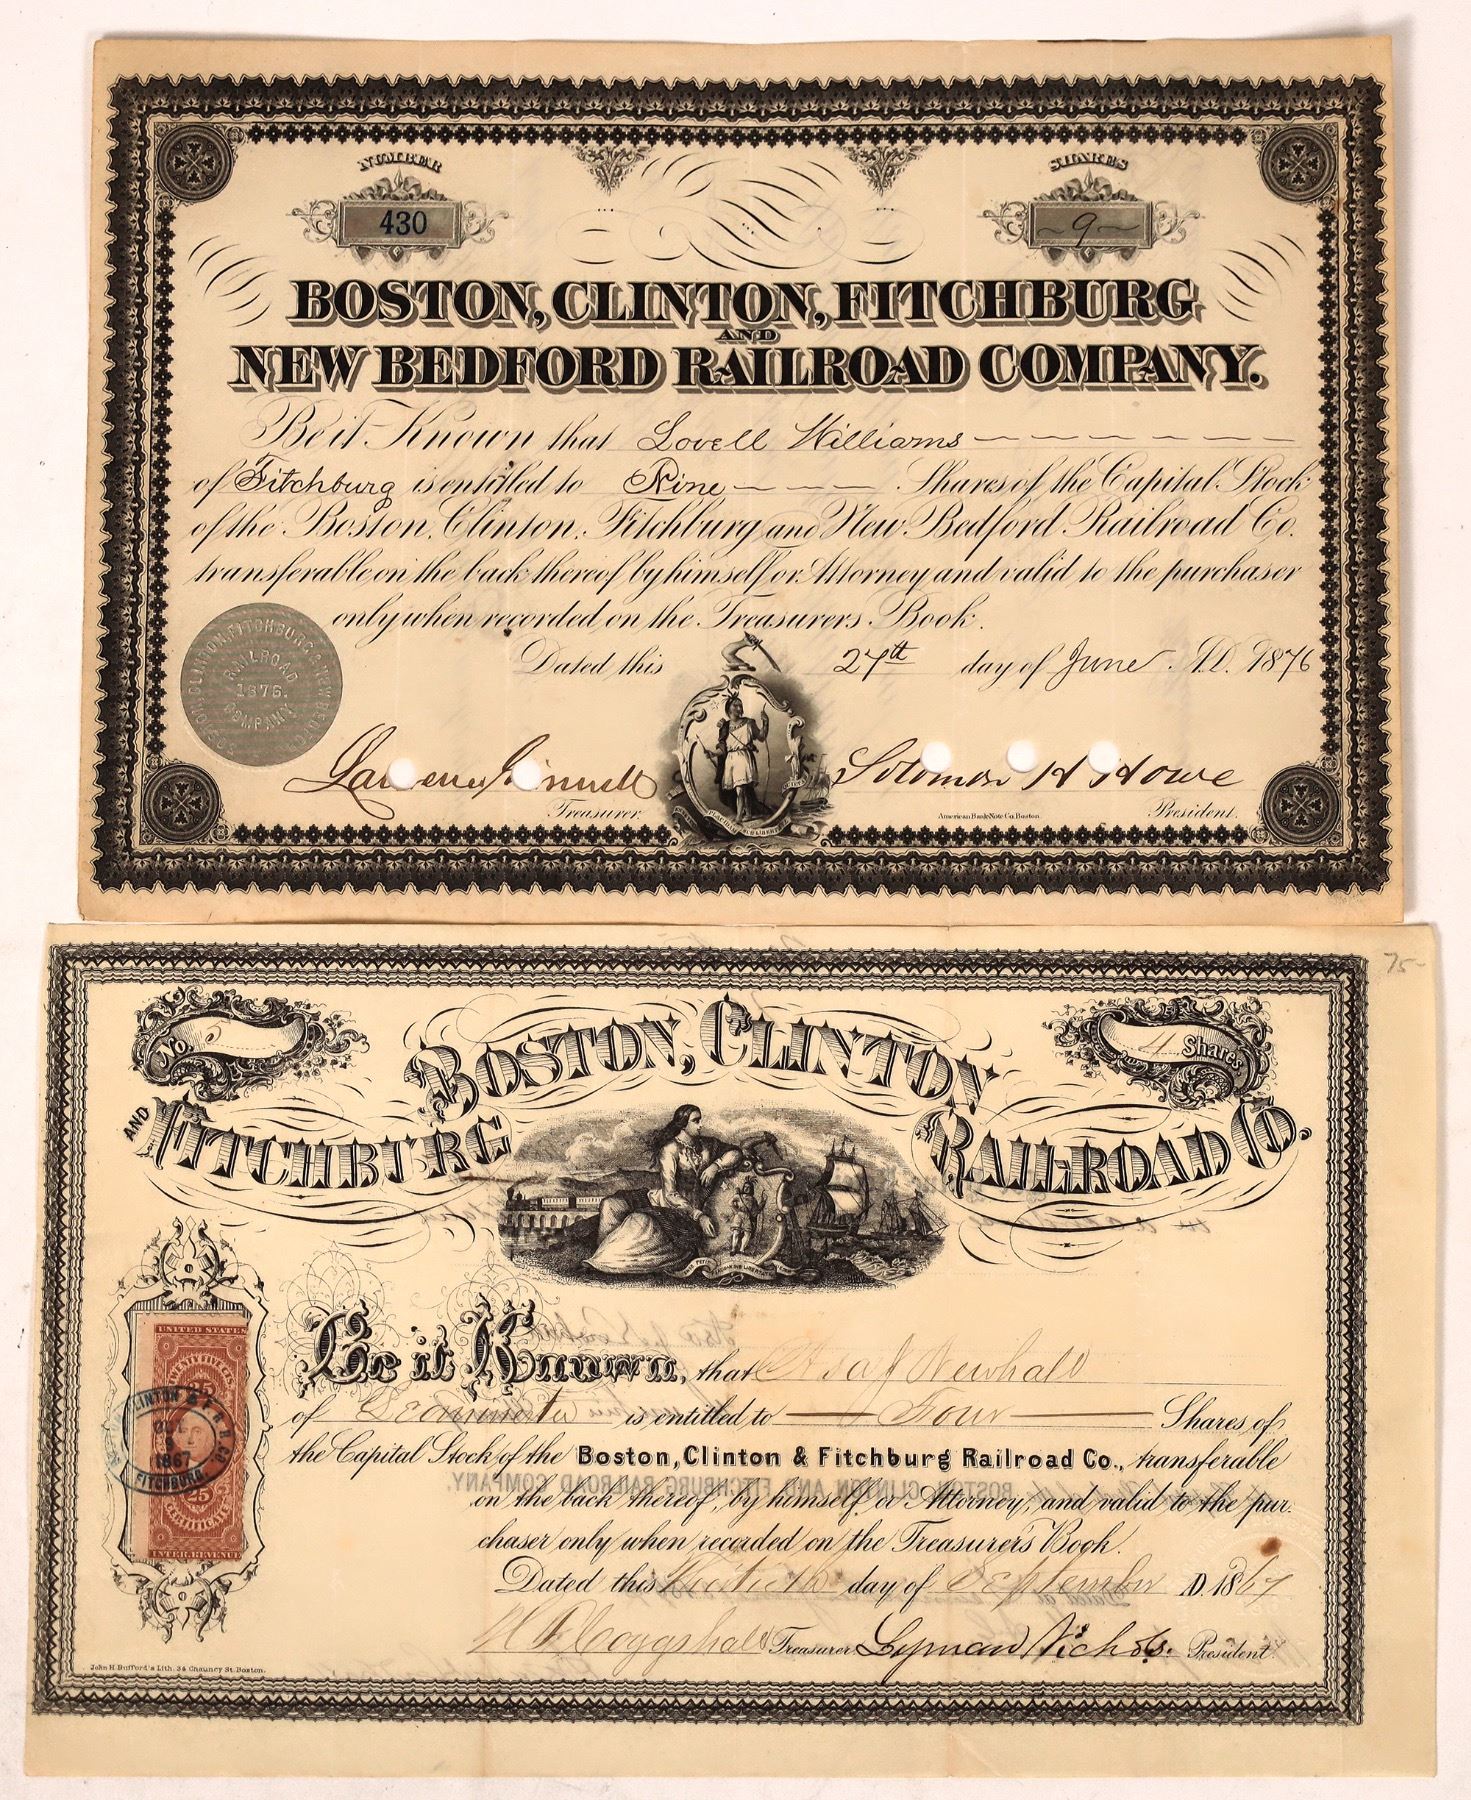 NUMBER
430
SHARES
9
BOSTON, CLINTON, FITCHBURG
AND
NEW BEDFORD RAILROAD COMPANY.
Be it Known that Lovell Williams
of Fitchburg is entitled to Nine Shares of the Capital Stock
of the Boston, Clinton, Fitchburg and New Bedford Railroad Co.
transferable on the back thereof by himself or Attorney and valid to the purchaser
only when recorded on the Treasurers Book.
Dated this 27th day of June A.D. 1876
BOSTON, CLINTON, FITCHBURG & NEW BEDFORD
RAILROAD
1876.
COMPANY
Solomon H Howe
Treasurer.
American Bank Note Co. Boston
President.
75-
No. 5
4 Shares
BOSTON, CLINTON
AND FITCHBURG RAILROAD CO.
UNITED STATES
TWENTY FIVE CTS.
25
CLINTON & F. R. R. CO.
5
1867
FITCHBURG
25
CERTIFICATE
INTER. REVENUE
Be it Known, that Asa J Newhall
of Leominster is entitled to Four Shares of
the Capital Stock of the Boston, Clinton & Fitchburg Railroad Co., transferable
on the back thereof, by himself or Attorney, and valid to the pur-
chaser only when recorded on the Treasurer's Book.
Dated this Thirtieth day of September A.D. 1867
Coggshall Treasurer Lyman Nichols. President.
John H. Bufford's Lith. 34 Chauncy St. Boston.